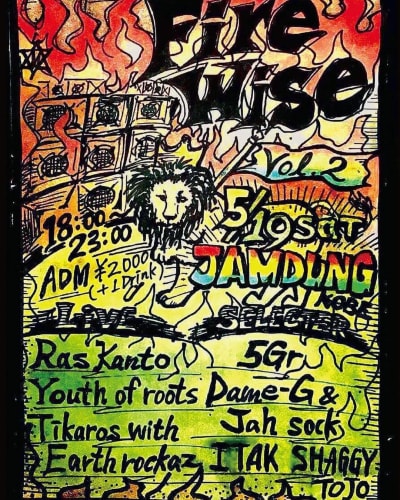 Fire
Wise
Vol.2
5/19 SAT
18:00~
23:00
ADM ¥2000
(+1 Drink)
JAMDUNG
KOBE
LIVE
SELECTER
Ras Kanto
Youth of roots
Tikaros with
Earth rockaz
5Gr
Dame-G &
Jah sock
ITAK SHAGGY
TOJO